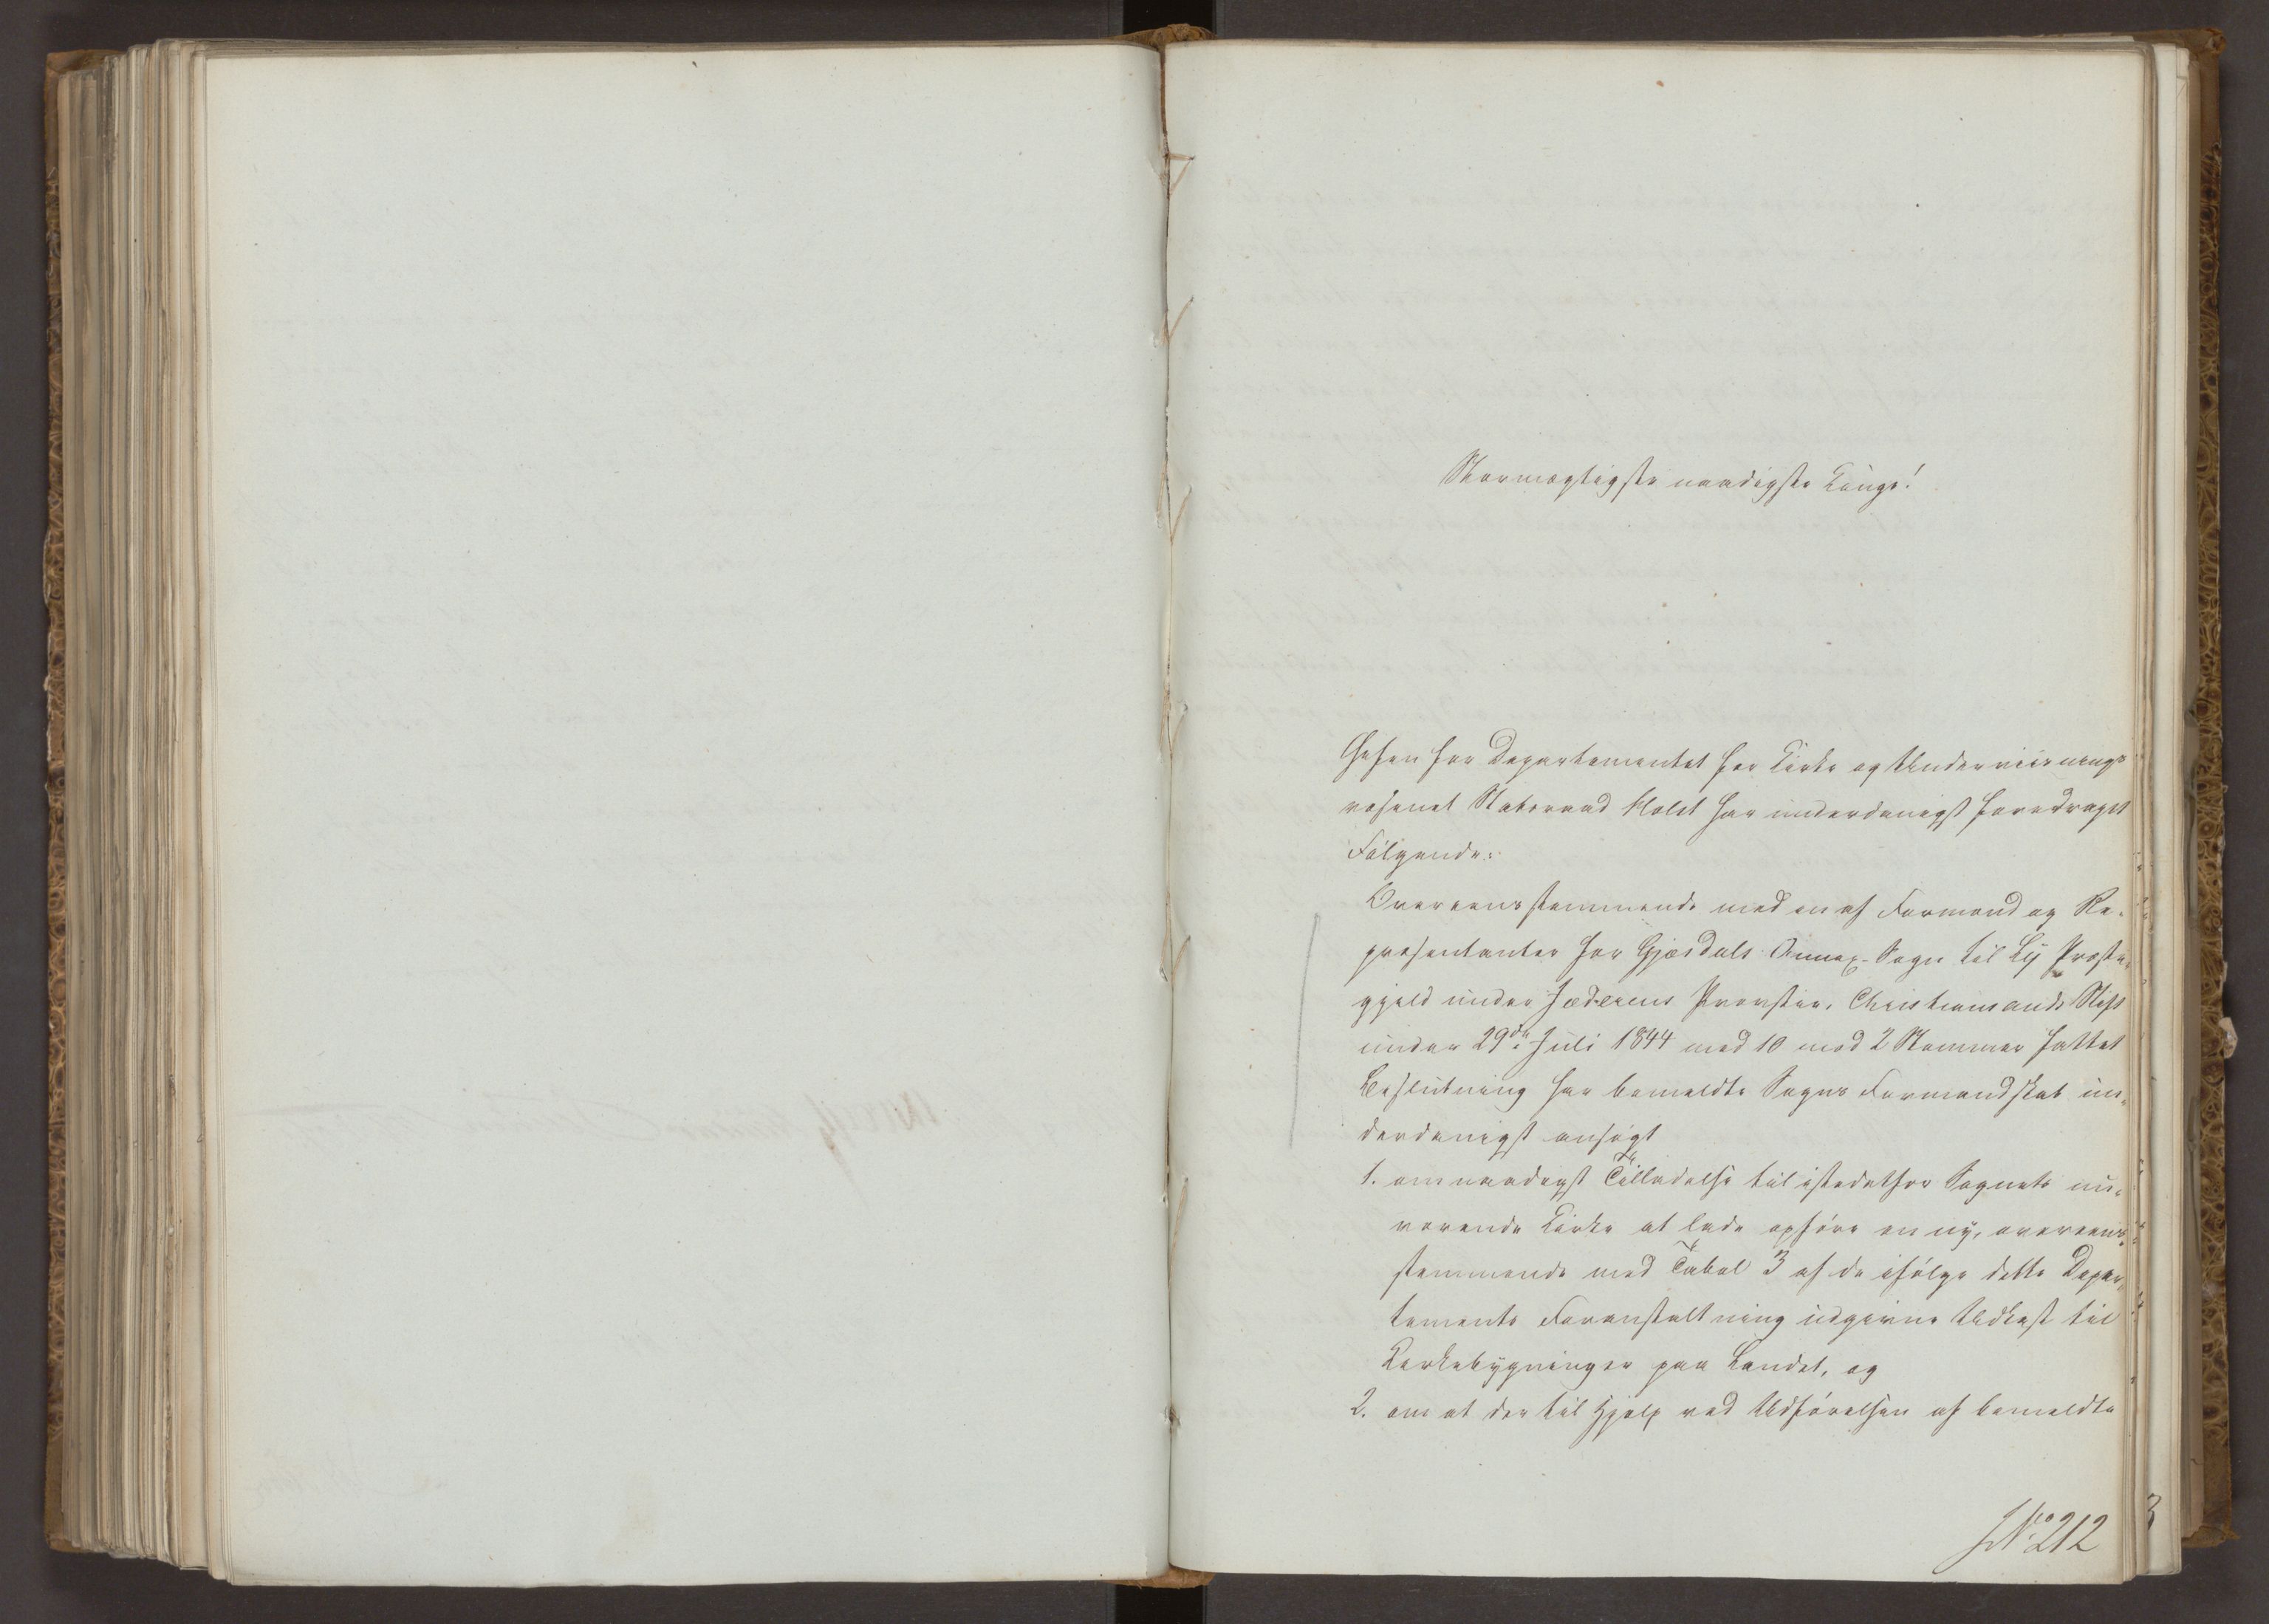 Stormægtigste naadigste Konge!
Chefen for Departementet for Kirke og Underviisnings
væsenet Statsraad Holst har underdanigst foredraget
Følgende:
Overeensstemmende med en af Formænd og Re-
præsentanter for Gjæsdals Annex-Sogn til Ly Præste-
gjeld under Jæderens Provstie, Christiansands Stift
under 29de Juli 1844 med 10 mod 2 Stemmer fattet
Beslutning har bemeldte Sogns Formandskab un-
derdanigst ansøgt
1. om naadigst Tilladelse til istedetfor Sognets nu-
værende Kirke at lade opføre en ny, overeens-
stemmende med Tabel 3 af de ifølge dette Depar-
tements Foranstaltning udgivne Udkast til
Kirkebygninger paa Landet, og
2. om at der til Hjelp ved Udførelsen af bemeldte
No 212